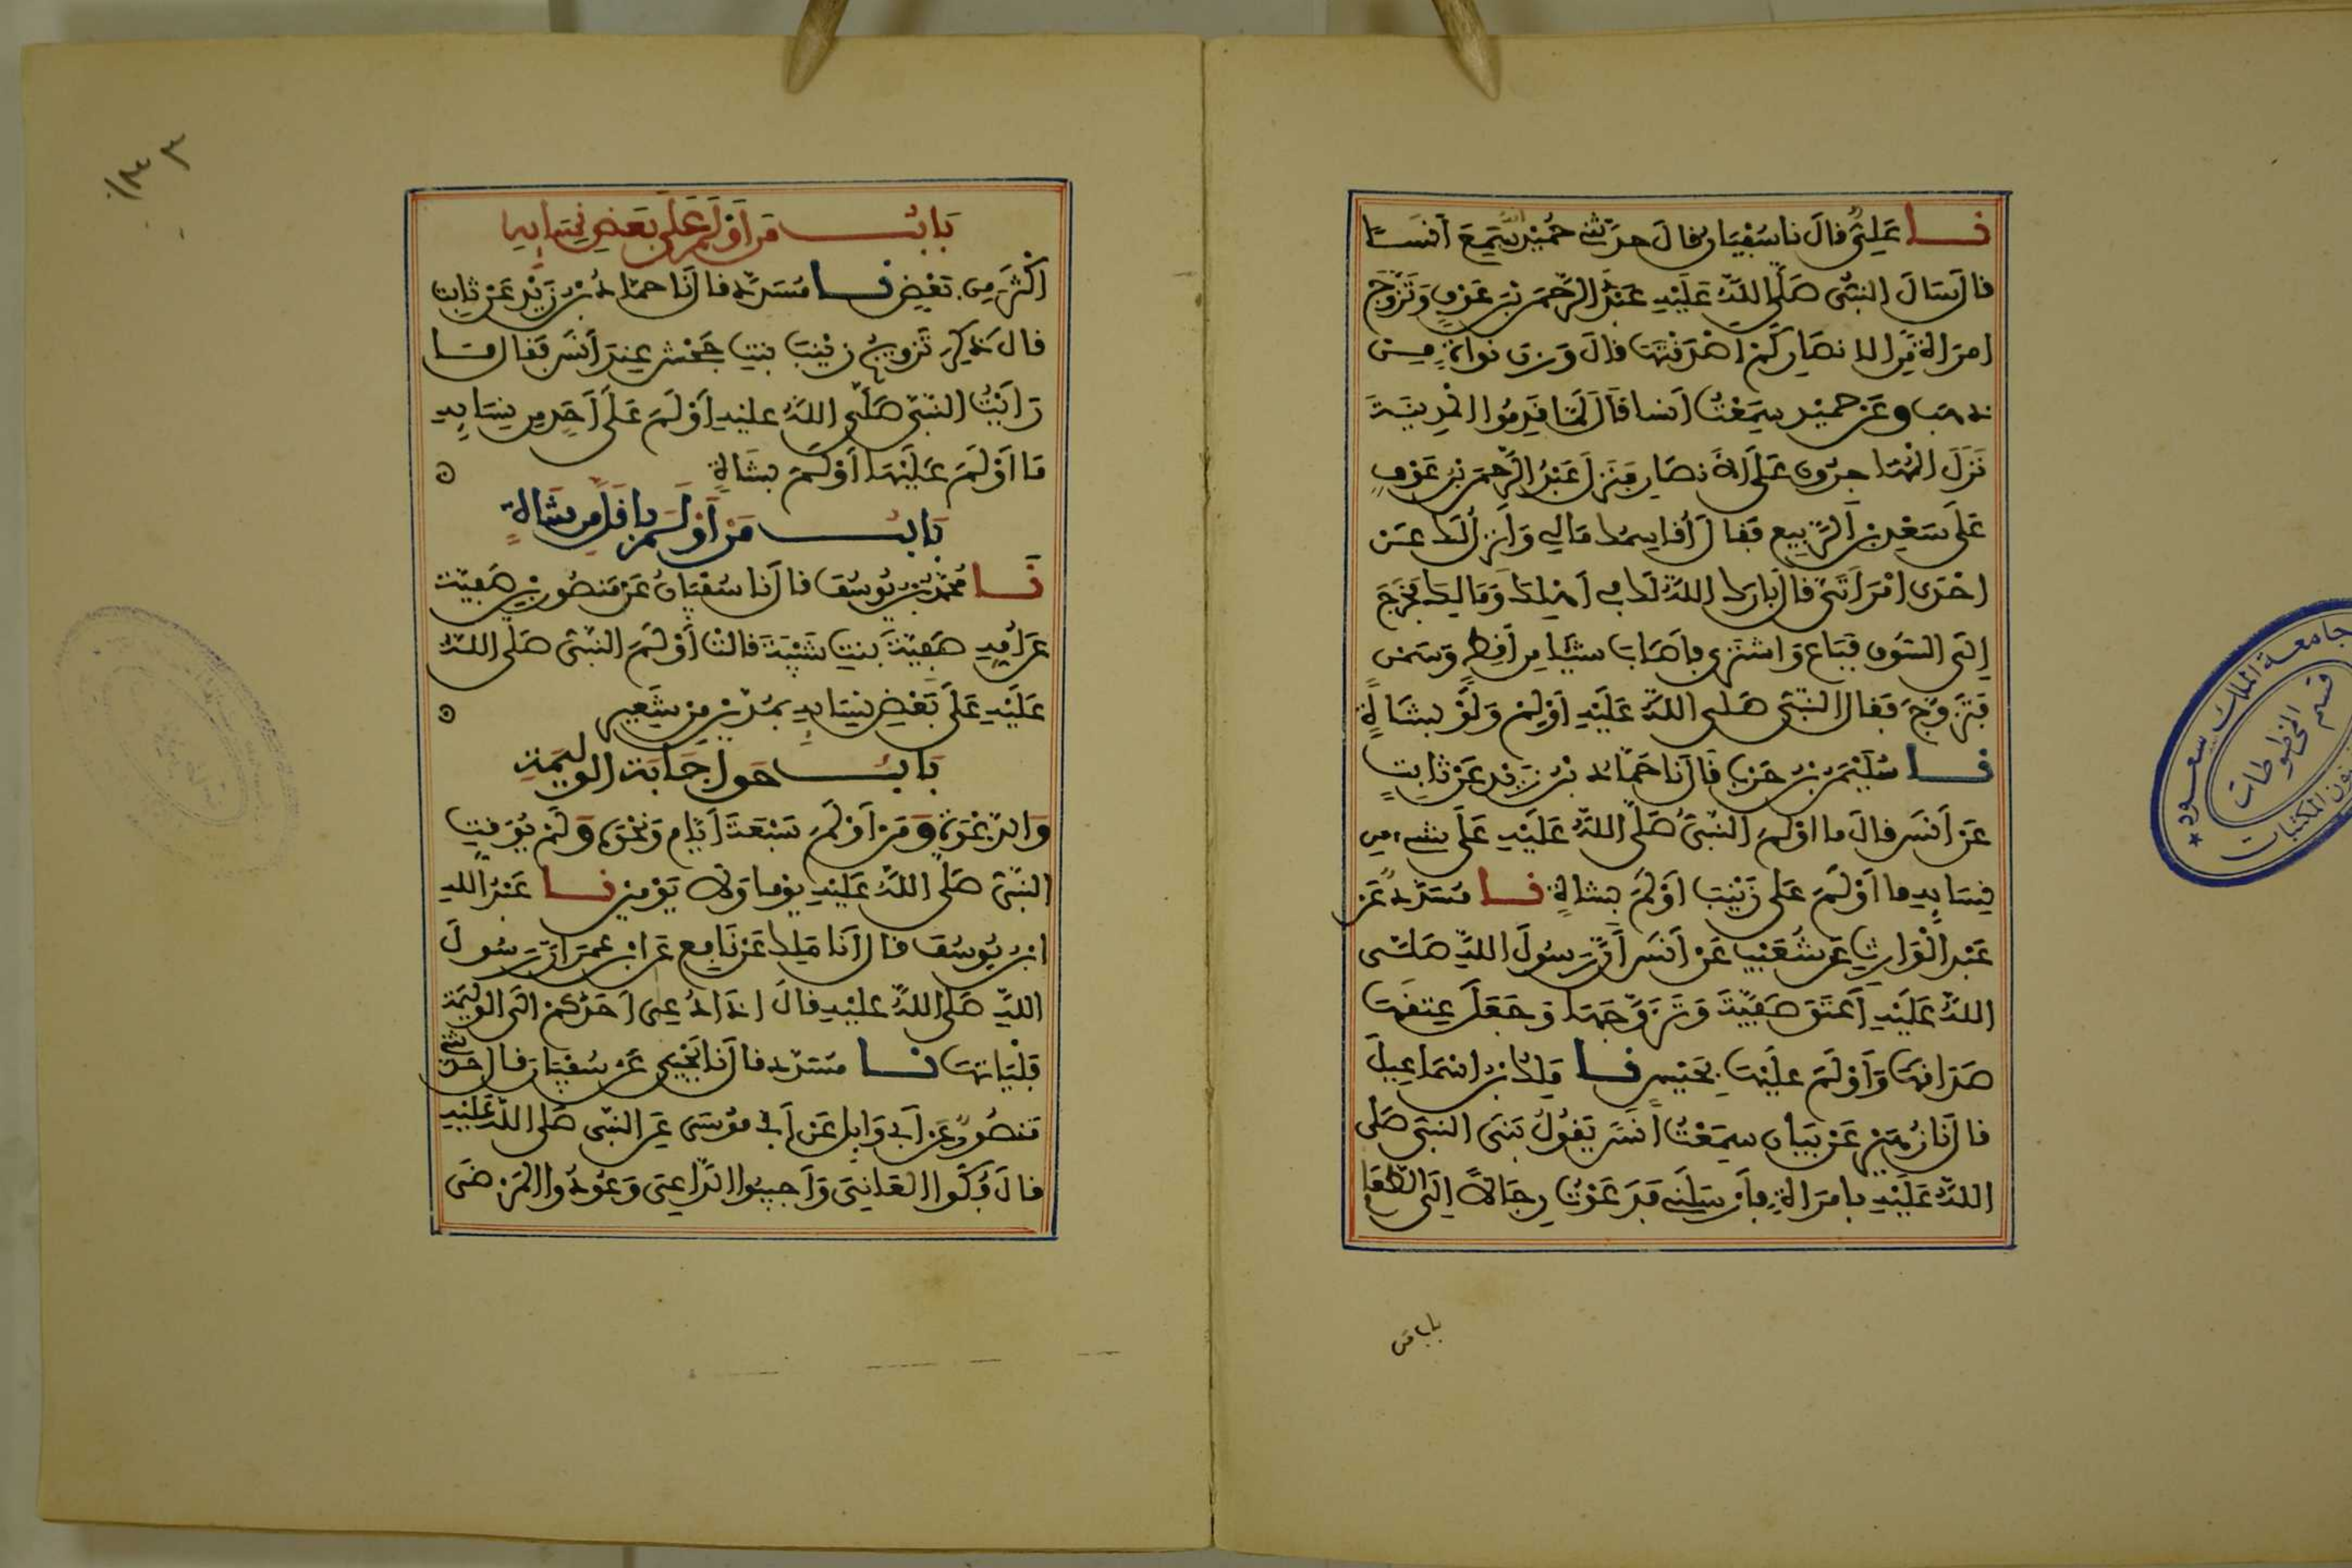 نا عَلِيٌّ قالَ نا سُفْيَانُ قالَ حدّثني حُمَيْدٌ أنّه سَمِعَ أنَسًا
قال سَالَ النبيُّ صَلَّى اللهُ عَلَيْهِ عَبْدَ الرَّحْمَنِ بْنَ عَوْفٍ وَتَزَوَّجَ
امرَأةً مِنَ الانصَارِ كَمْ اصْدَقْتَهَا قالَ وَزنَ نواةٍ مِن
ذهَبٍ وعَن حميْدٍ سَمِعْتُ أنسا قَالَ لَمَّا قَدِمُوا المَدِينَةَ
نَزَلَ المُهَاجِرُونَ عَلَى الانصَارِ فَنَزلَ عَبْدُ الرَّحْمَنِ بْنُ عَوْفٍ
عَلَى سَعْدِ بْنِ الرَّبِيعِ فَقالَ أُقاسِمُكَ مَالِي وَأنزِلُ لَكَ عَن
احْدَى امْرَأَتَيَّ قالَ بَارَكَ اللهُ لَكَ في أهْلِكَ وَمَالِكَ فخَرَجَ
إلَى السُّوقِ فَبَاعَ وَاشتَرَى فأصَابَ شيْئا مِن أقِطٍ وَسَمْنٍ
فَتَزَوَّجَ فَقالَ النَّبيُّ صَلَّى اللهُ عَلَيْهِ أوْلِمْ وَلَوْ بِشَاةٍ
نا سُلَيْمَنُ بْنُ حَرْبٍ قَالَ نا حَمَّادُ بْنُ زَيْدٍ عَنْ ثَابِتٍ
عَنْ أنَسٍ قالَ ما اوْلَمَ النَّبيُّ صَلَّى اللهُ عَلَيْهِ عَلَى شيءٍ مِن
نِسَايِهِ ما أوْلَمَ عَلَى زَيْنَبَ أوْلَمَ بشاةٍ نا مُسَدَّدٌ عَن
عَبْدِ الْوَارِثِ عَن شُعَيْبٍ عَنْ أنَسٍ أنَّ رَسُولَ اللهِ صَلَّى
اللهُ عَلَيْهِ أَعْتَقَ صَفِيَّةَ وَتَزَوَّجَهَا وَجَعَلَ عِتقَهَا
صَدَاقَهَا وَأوْلَمَ عَلَيْهَا بِحَيْسٍ نا مَلِكُ بْنُ اسْمَاعِيلَ
قالَ نا زُهَيْرٌ عَنْ بَيَانٍ سَمِعْتُ أَنَسًا يَقُولُ بَنَى النبيُّ صَلى
اللهُ عَلَيْهِ بامرَأةٍ فأَرْسَلَنِي فَدَعَوْتُ رِجَالاً إلَى الطَّعَامِ
باب من
بَابُ مَن أَوْلَمَ عَلَى بَعْضِ نِسَايِهِ
اكْثَرَ مِن بَعْضٍ نا مُسَدَّدٌ قالَ نَا حمّادُ بْنُ زَيْدٍ عَنْ ثابِتٍ
قالَ ذُكِرَ تَزوِيجُ زيْنَبَ بنتِ جَحْشٍ عِندَ أنَسٍ فَقَالَ مَا
رَايْتُ النَّبيَّ صَلَّى اللهُ عليْهِ أوْلَمَ عَلَى أحَدٍ مِن نِسَايِهِ
مَا أوْلَمَ عَلَيْهَا أوْلَمَ بِشَاةٍ
بَابُ مَنْ أَوْلَمَ بِأقَلَّ مِن شَاةٍ
نَا مُحَمَّدُ بْنُ يُوسُفَ قالَ نا سُفْيَانُ عَن مَنصُورِ بْنِ صَفِيَّةَ
عَنْ أُمِّهِ صَفِيَّةَ بِنتِ شَيْبَةَ قالَتْ أوْلَمَ النَّبيُّ صَلَّى اللهُ
عَلَيْهِ عَلَى بَعْضِ نِسَايِهِ بِمُدَّيْنِ مِن شَعِيرٍ
بَابُ حَقِّ إجَابَةِ الوَلِيمَةِ
وَالدَّعْوَةِ وَمَنْ أوْلَمَ سَبْعَةَ أيَّامٍ وَنَحْوَهُ وَلَمْ يُوَقِّتِ
النَّبيُّ صَلَّى اللهُ عَلَيْهِ يوْما وَلا يَوْمَيْنِ نا عَبْدُ اللهِ
ابْنُ يُوسُفَ قالَ أنَا مَلِكٌ عَنْ نَافِعٍ عَنِ ابْنِ عُمَرَ أنَّ رَسُولَ
اللهِ صَلى اللهُ عليْهِ قالَ إذَا دُعِيَ أحَدُكُمْ إلَى الوَلِيمَةِ
فَلْيَاتِهَا نا مُسَدَّدٌ قالَ نَا يَحْيَى عَنْ سُفْيَانَ قالَ حَدَّثَني
مَنصُورٌ عَنْ أبِي وَايِلٍ عَن أبِي مُوسَى عَنِ النبيِّ صَلى اللهُ عَلَيْهِ
قالَ فُكُّوا العَانِيَ وَأجِيبُوا الدَّاعِيَ وَعُودُوا المَرْضَى
جامعة الملك سعود
قسم المخطوطات